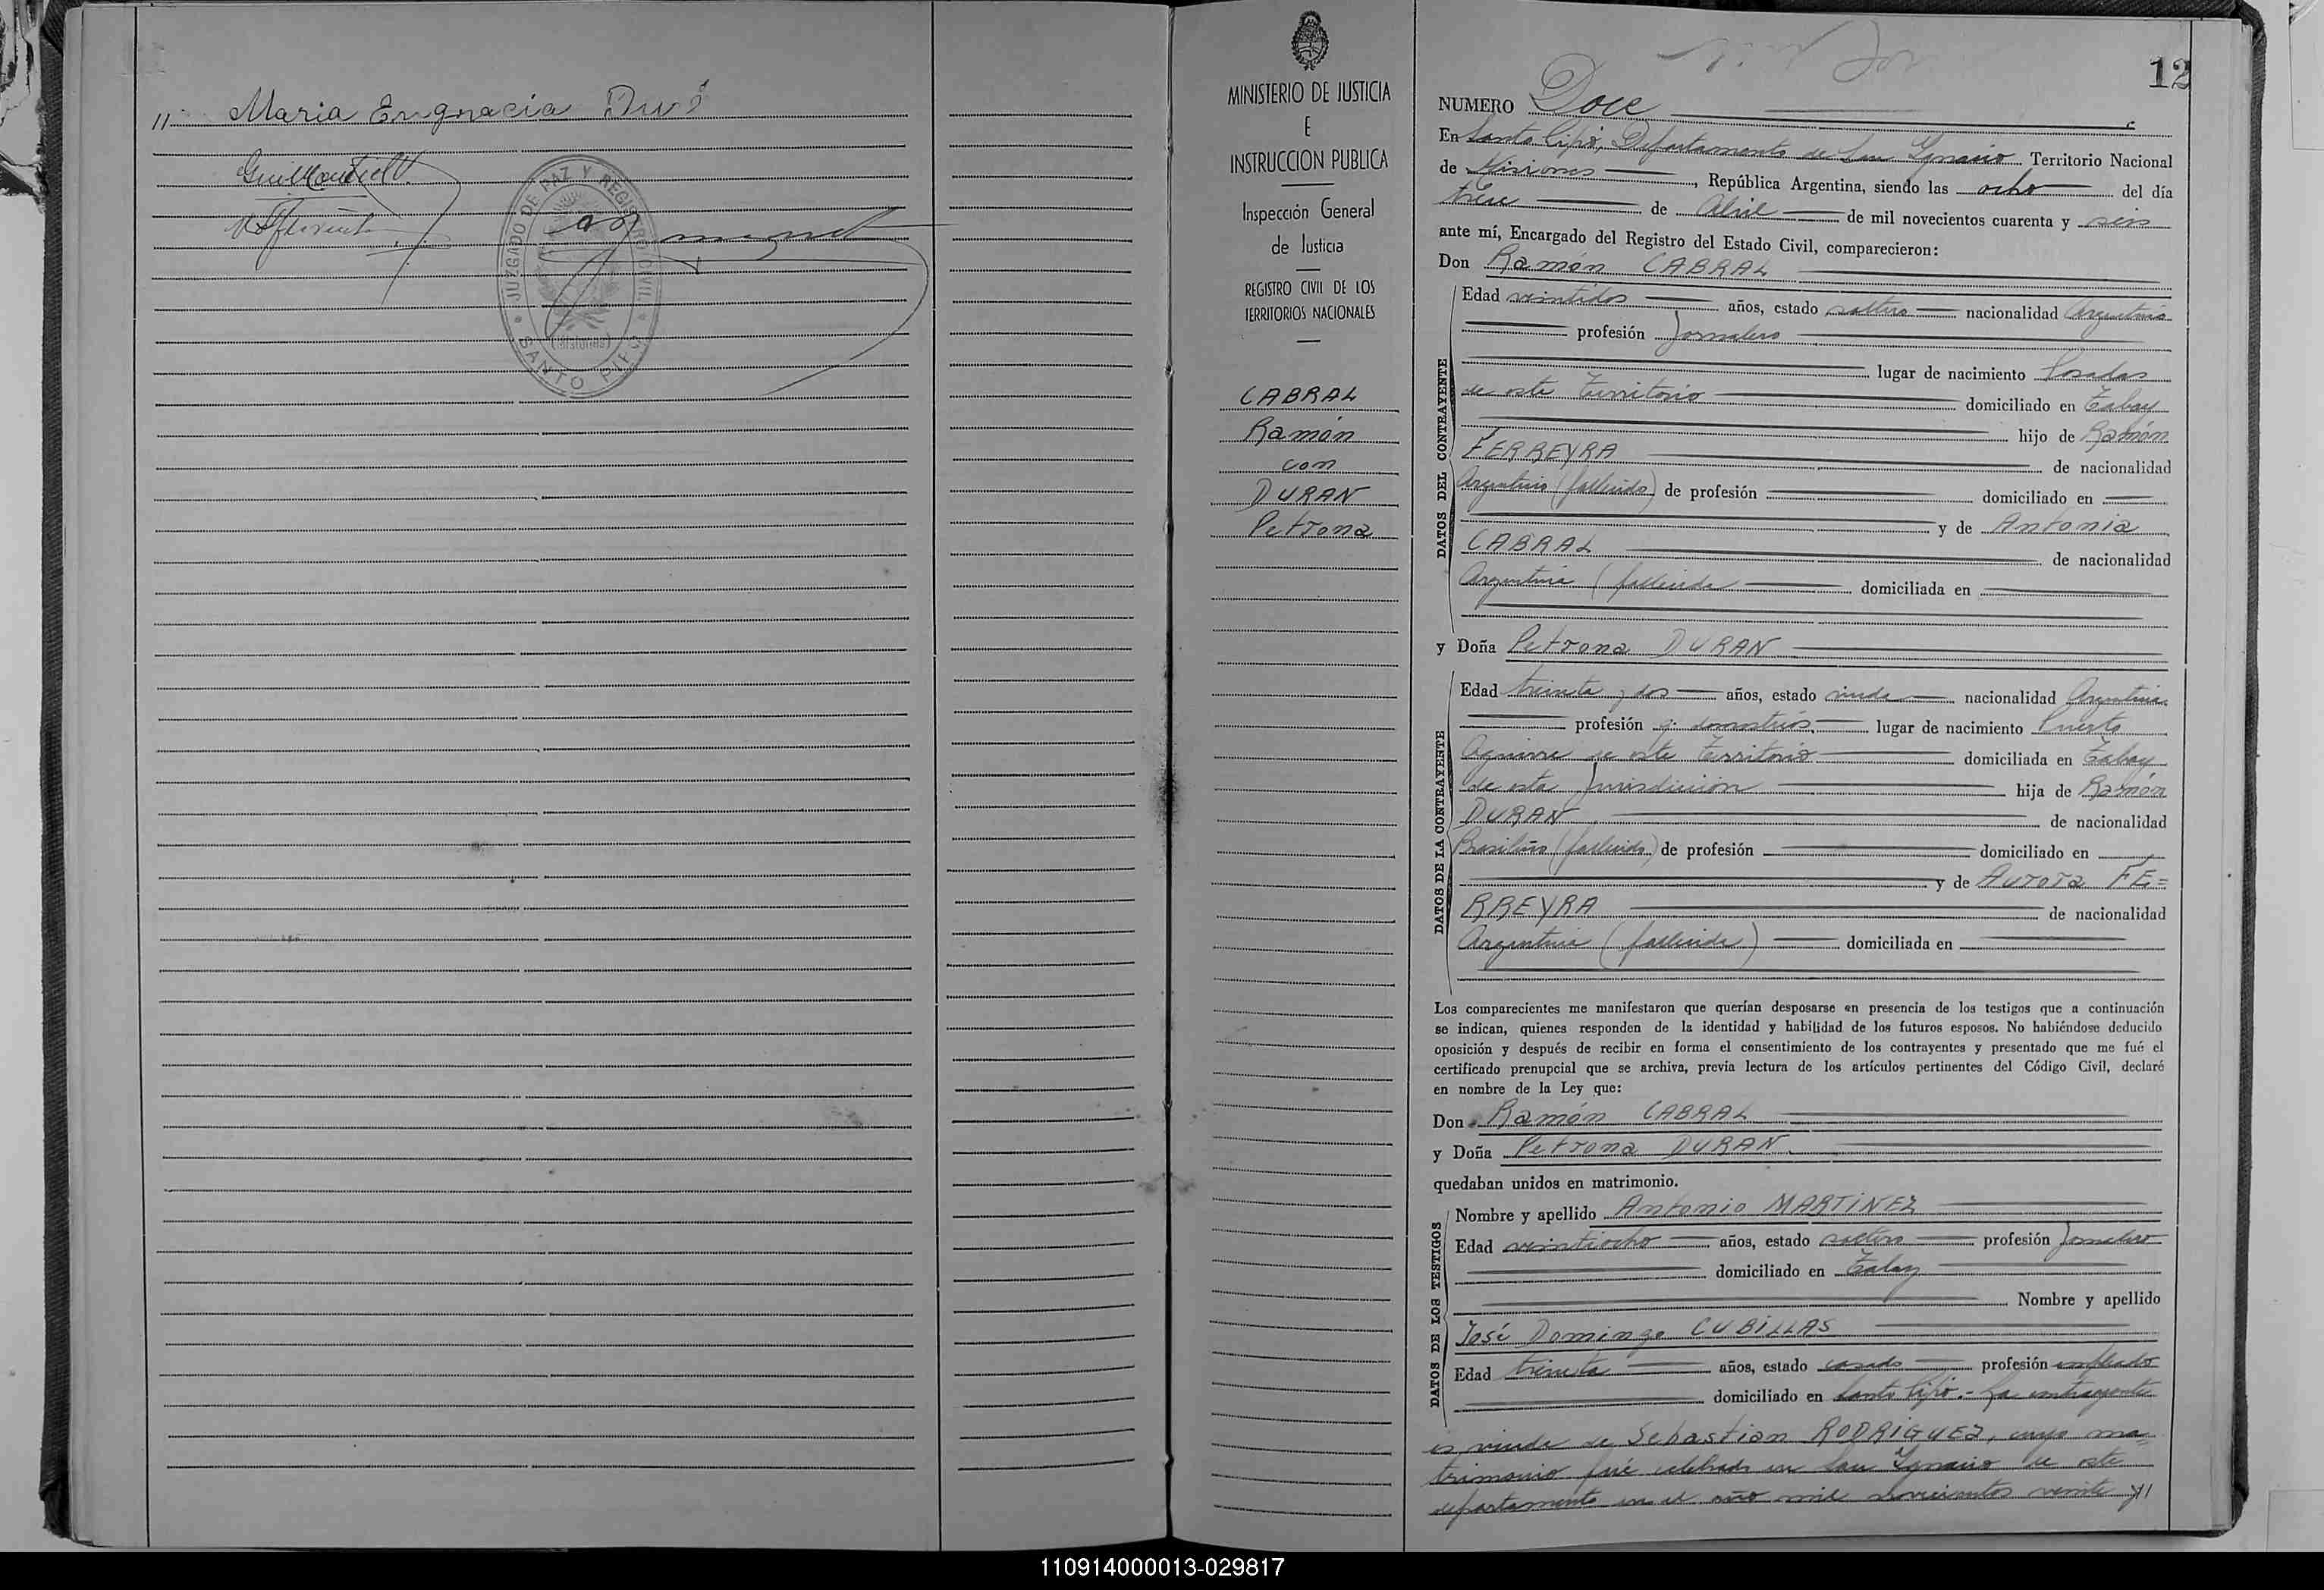 11 Maria Engnacia
JUZGADO DE PAZ Y REGISTRO CIVIL
SANTO PIPÓ
MINISTERIO DE JUSTICIA
E
INSTRUCCION PUBLICA
Inspección General
de Justicia
REGISTRO CIVIL DE LOS
TERRITORIOS NACIONALES
CABRAL
Ramón
con
DURAN
Petrona
12
NUMERO Doce
En Santo Pipó, Departamento de San Ygnacio Territorio Nacional
de Misiones, República Argentina, siendo las ocho del día
trece de Abril de mil novecientos cuarenta y seis
ante mí, Encargado del Registro del Estado Civil, comparecieron:
Don Ramón CABRAL
DATOS DEL CONTRAYENTE
Edad veintidos años, estado soltero nacionalidad Argentina
profesión Jornalero
lugar de nacimiento Posadas
de este Territorio domiciliado en Tabay
hijo de Ramón
FERREYRA de nacionalidad
Argentino (fallecido) de profesión domiciliado en
y de Antonia
CABRAL de nacionalidad
Argentina (fallecida domiciliada en
y Doña Petrona DURAN
DATOS DE LA CONTRAYENTE
Edad treinta y dos años, estado viuda nacionalidad Argentina
profesión q. domésticos. lugar de nacimiento Puerto
Aguirre de este Territorio domiciliada en Tabay
de esta Jurisdicción hija de Ramón
DURAN de nacionalidad
Brasileño (fallecido) de profesión domiciliado en
y de Aurora FE=
RREYRA de nacionalidad
Argentina (fallecida) domiciliada en
Los comparecientes me manifestaron que querían desposarse en presencia de los testigos que a continuación
se indican, quienes responden de la identidad y habilidad de los futuros esposos. No habiéndose deducido
oposición y después de recibir en forma el consentimiento de los contrayentes y presentado que me fué el
certificado prenupcial que se archiva, previa lectura de los artículos pertinentes del Código Civil, declaré
en nombre de la Ley que:
Don Ramón CABRAL
y Doña Petrona DURAN
quedaban unidos en matrimonio.
DATOS DE LOS TESTIGOS
Nombre y apellido Antonio MARTiNEZ
Edad veintiocho años, estado soltero profesión Jornalero
domiciliado en Tabay
Nombre y apellido
José Domingo CUBiLLAS
Edad treinta años, estado casado profesión empleado
domiciliado en Santo Pipó.- La contrayente
es viuda de Sebastian RODRiGUEZ, cuyo ma=
trimonio fué celebrado en San Ygnacio de este
departamento en el año mil novecientos veinte y//
110914000013-029817